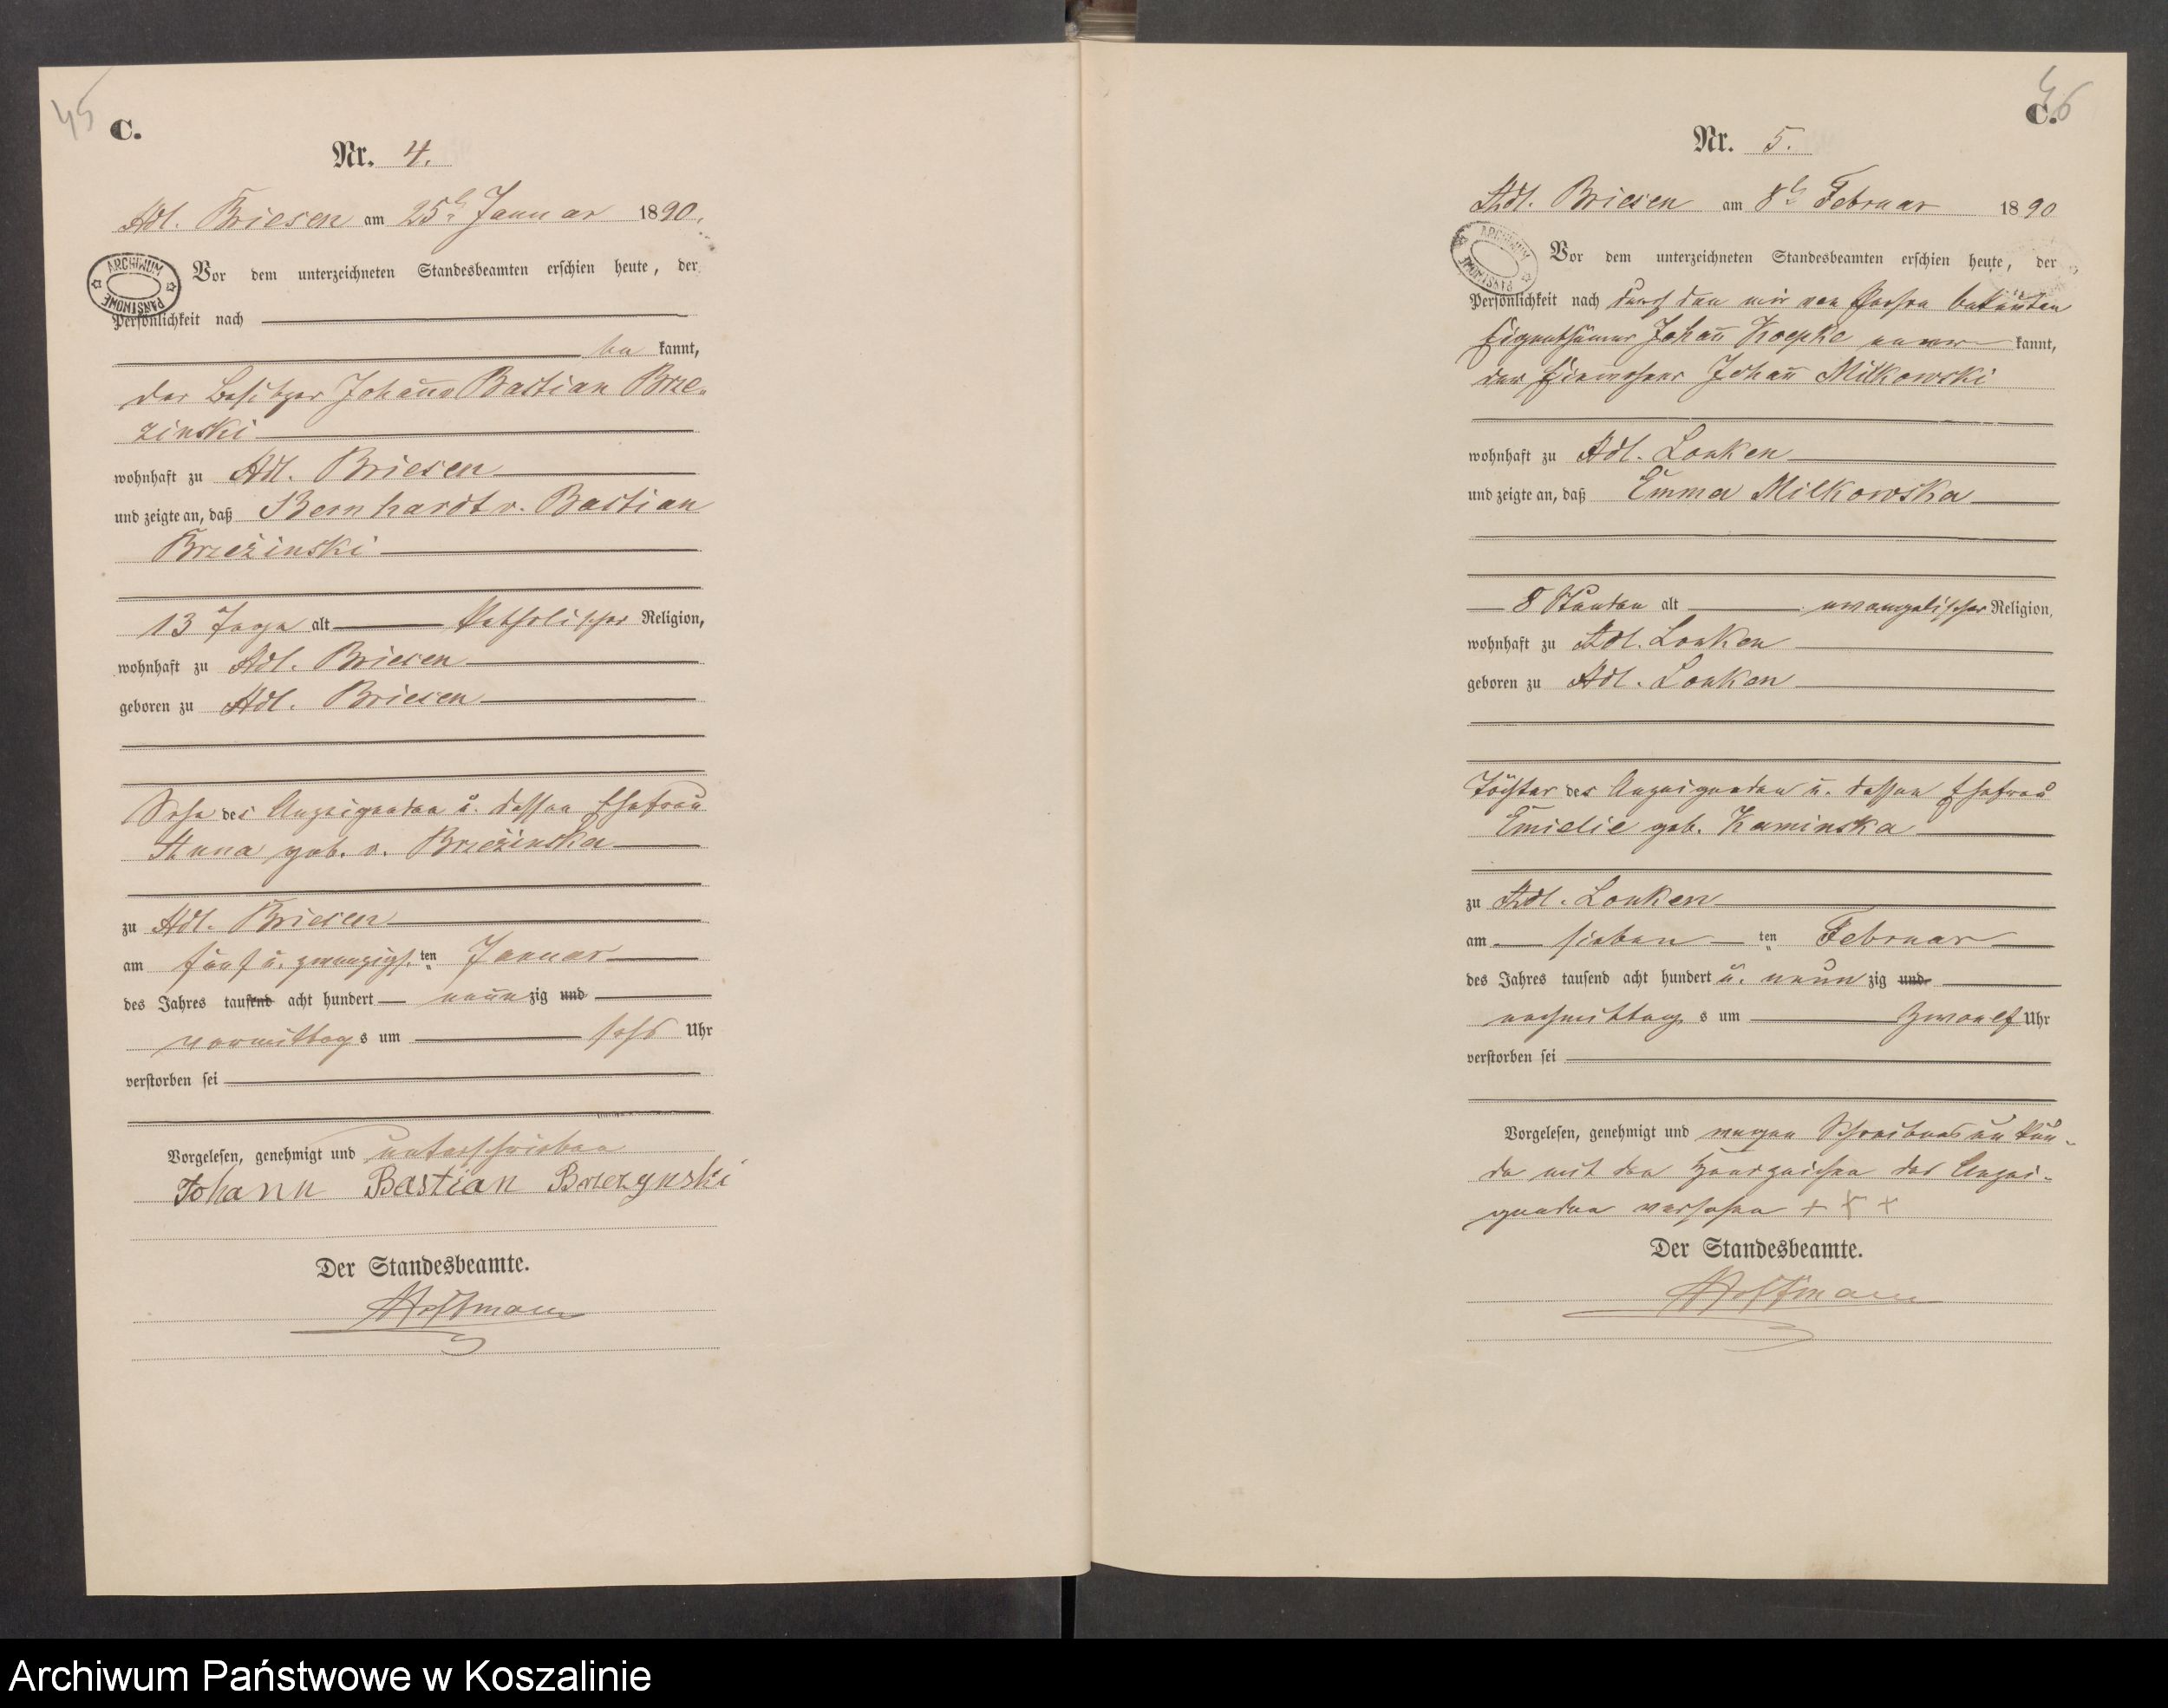 45
C.
Nr. 4.
Adl. Briesen am 25t. Januar 1890.
ARCHIWUM PAŃSTWOWE
Vor dem unterzeichneten Standesbeamten erschien heute, der
Persönlichkeit nach
be kannt,
der Besitzer Johann Bastian Brze-
zinski
wohnhaft zu Adl. Briesen
und zeigte an, daß Bernhardt v. Bastian
Brzezinski
13 Tage alt katholischer Religion,
wohnhaft zu Adl. Briesen
geboren zu Adl. Briesen
Sohn des Anzeigenden u. dessen Ehefrau
Anna geb. v. Brzezinska
zu Adl. Briesen
am fünf u. zwanzigs. ten Januar
des Jahres tausend acht hundert neun zig und
vormittag s um sechs Uhr
verstorben sei
Vorgelesen, genehmigt und unterschrieben
Johann Bastian Brzezynski
Der Standesbeamte.
Hoffmann
46
C.
Nr. 5.
Adl. Briesen am 8t. Februar 1890
ARCHIWUM PAŃSTWOWE
Vor dem unterzeichneten Standesbeamten erschien heute, der
Persönlichkeit nach durch den mir von Person bekannten
Eigenthümer Johann Koepke aner kannt,
der Einwohner Johann Milkowski
wohnhaft zu Adl. Lonken
und zeigte an, daß Emma Milkowska
8 Stunden alt evangelischer Religion,
wohnhaft zu Adl. Lonken
geboren zu Adl. Lonken
Tochter des Anzeigenden u. dessen Ehefrau
Emielie geb. Kaminska
zu Adl. Lonken
am sieben ten Februar
des Jahres tausend acht hundert u. neun zig und
nachmittag s um zwoelf Uhr
verstorben sei
Vorgelesen, genehmigt und wegen Schreibensunkun-
de mit den Handzeichen des Anzei-
genden versehen + + +
Der Standesbeamte.
Hoffmann
Archiwum Państwowe w Koszalinie